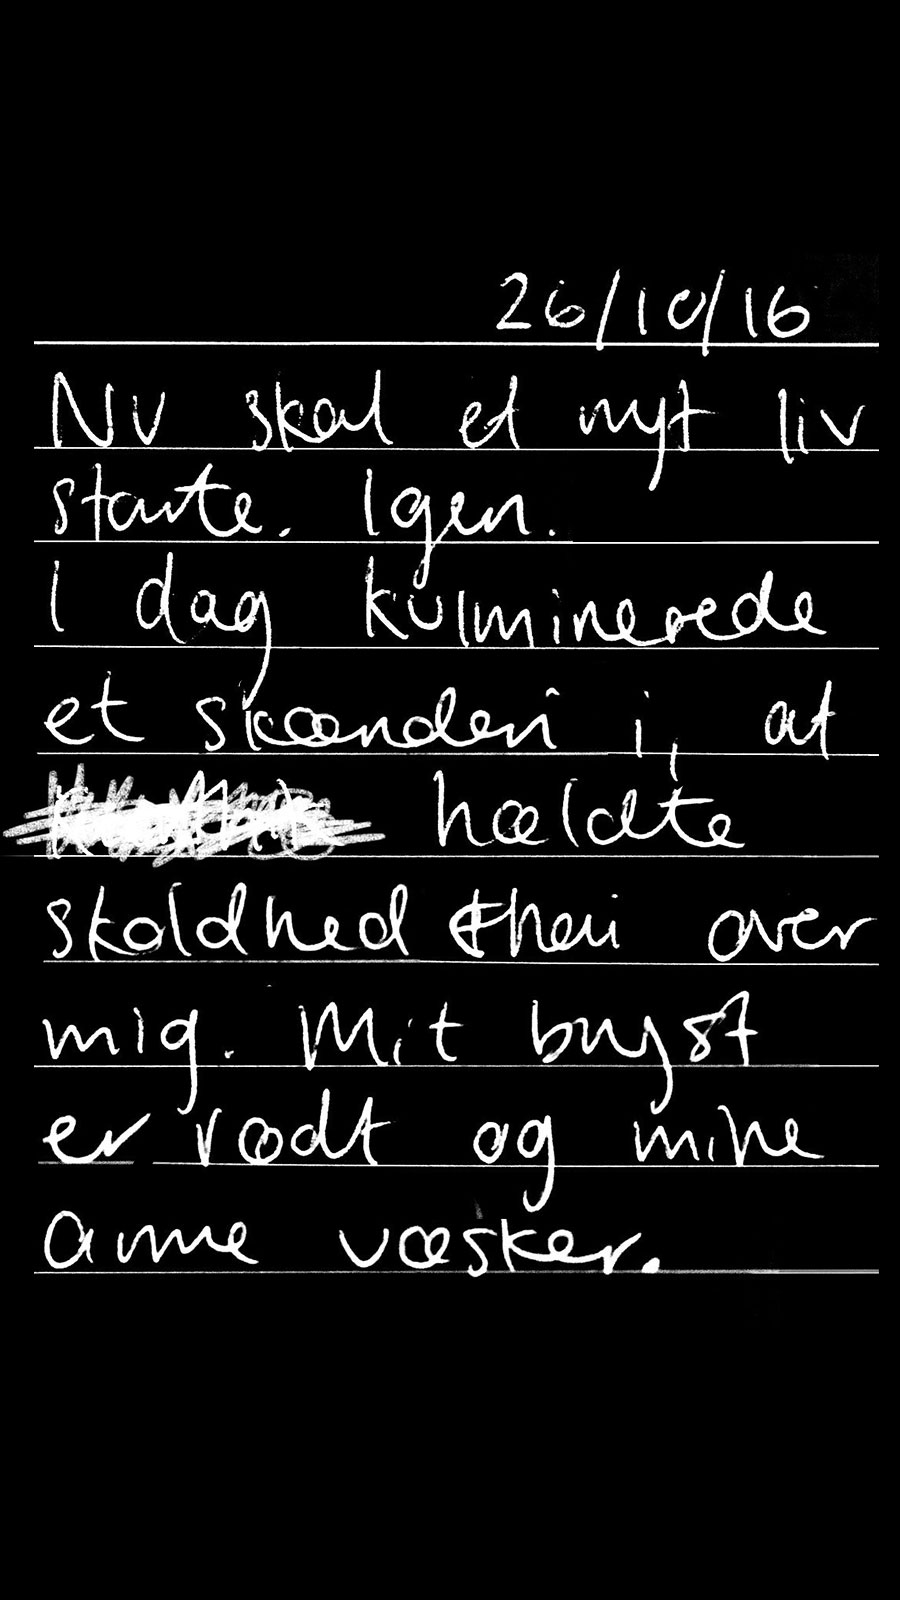 26/10/16
Nu skal et nyt liv
starte. Igen.
I dag kulminerede
et skænderi i, at
hældte
skoldhed the i over
mig. Mit bryst
er rødt og mine
arme væsker.